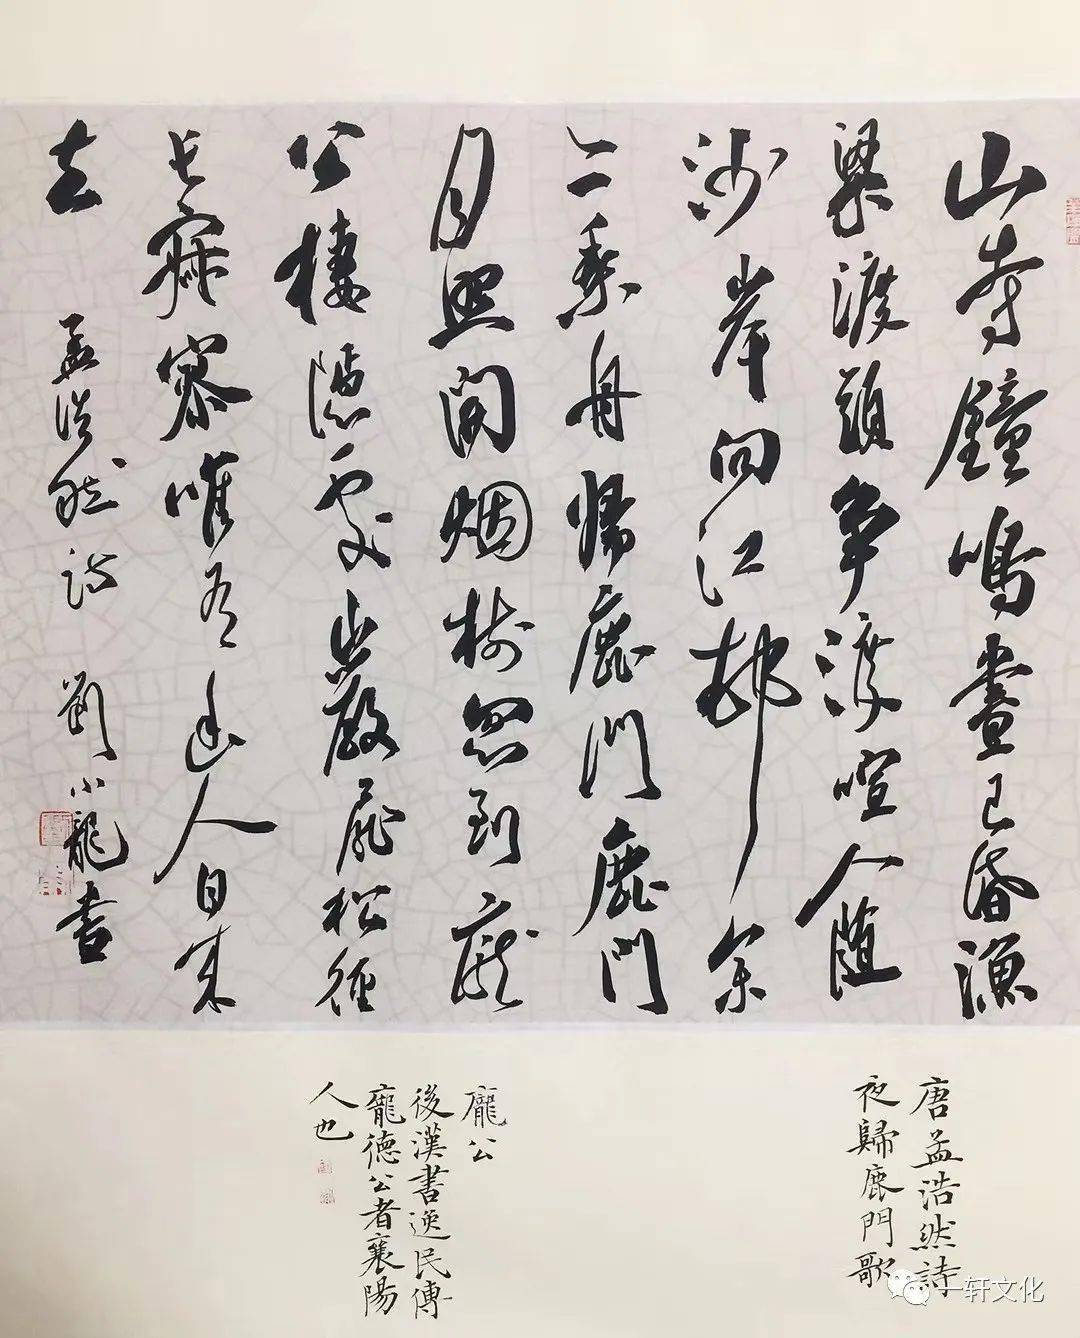 山寺鐘鳴晝已昏漁
梁渡頭争渡喧人随
沙岸向江邨余
亦乘舟歸鹿門鹿門
月照開烟樹忽到龐
公棲隱處巖扉松徑
長寂寥唯有幽人自来
去 孟浩然詩 劉小龍書
唐孟浩然詩
夜歸鹿門歌
龐公
後漢書逸民傳
龐德公者襄陽
人也
一轩文化